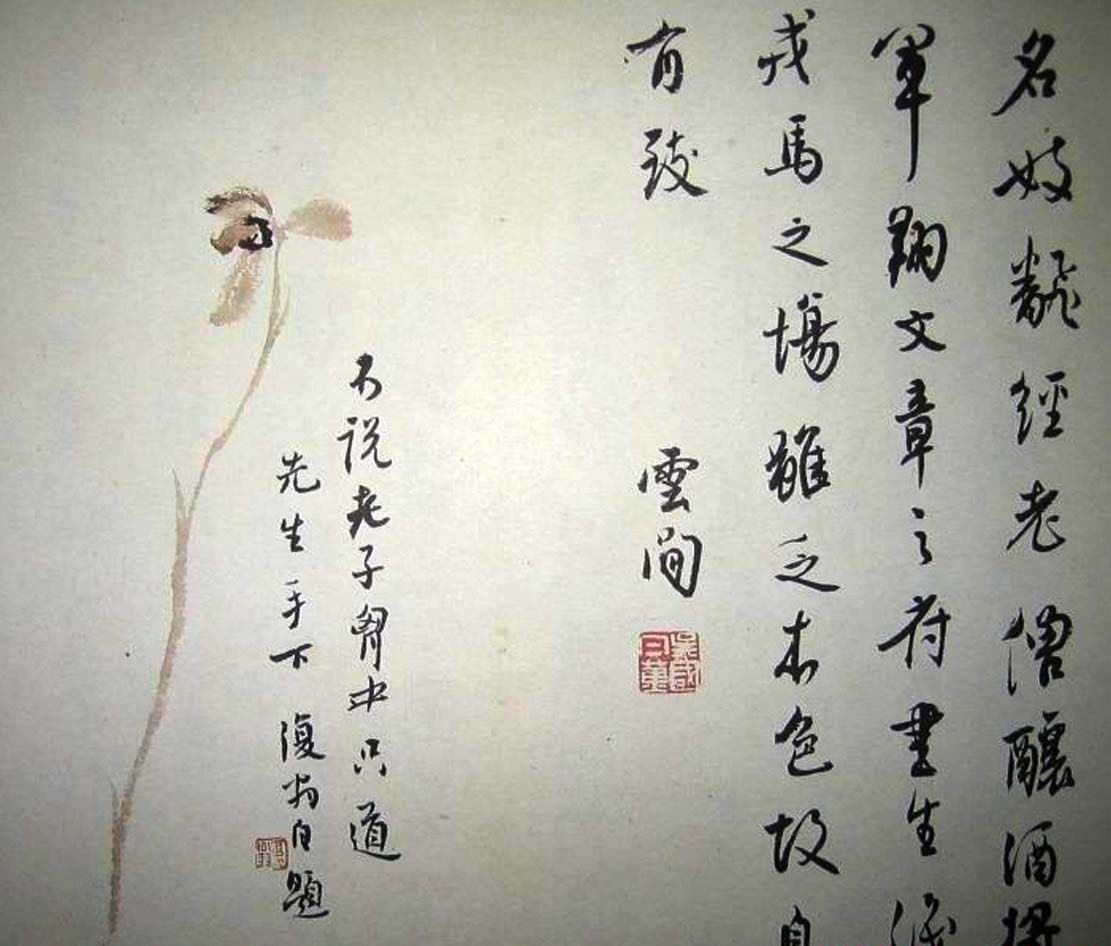 名妓飜經老僧釀酒
軍翔文章之府書生
戎馬之場雖乏本色故自
有致
雲間
不説老子胷中只道
先生手下 復翁自題